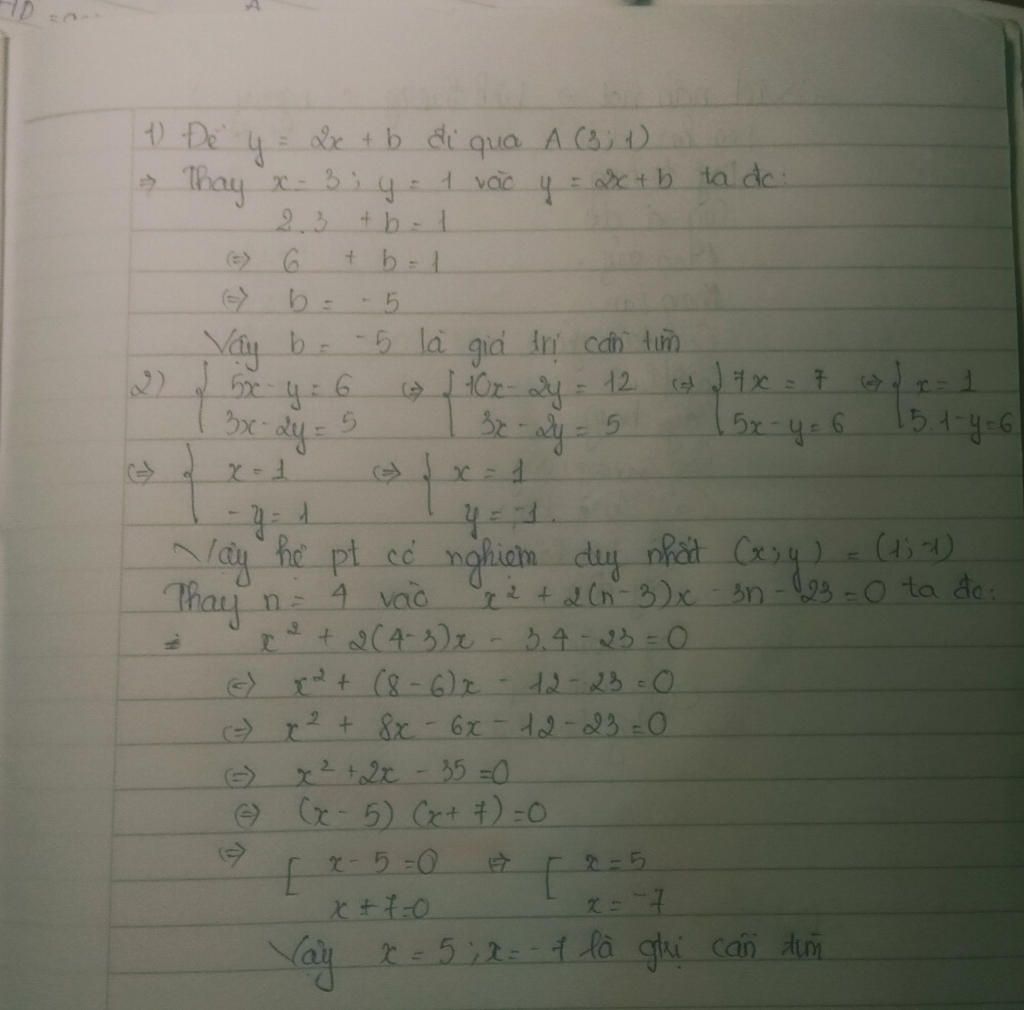 HD =
A
1) Để y = 2x + b đi qua A (3; 1)
=> Thay x = 3 ; y = 1 vào y = 2x + b ta đc:
2.3 + b = 1
<=> 6 + b = 1
<=> b = -5
Vậy b = -5 là giá trị cần tìm
2) { 5x - y = 6 <=> { 10x - 2y = 12 <=> { 7x = 7 <=> { x = 1
3x - 2y = 5 3x - 2y = 5 5x - y = 6 5.1 - y = 6
<=> { x = 1 <=> { x = 1
-y = 1 y = -1.
Vậy hệ pt có nghiệm duy nhất (x; y) = (1; -1)
Thay n = 4 vào x² + 2(n-3)x - 3n - 23 = 0 ta đc:
x² + 2(4-3)x - 3.4 - 23 = 0
<=> x² + (8-6)x - 12 - 23 = 0
<=> x² + 8x - 6x - 12 - 23 = 0
<=> x² + 2x - 35 = 0
<=> (x - 5) (x + 7) = 0
<=> [ x - 5 = 0 <=> [ x = 5
x + 7 = 0 x = -7
Vậy x = 5 ; x = -7 là gtrị cần tìm